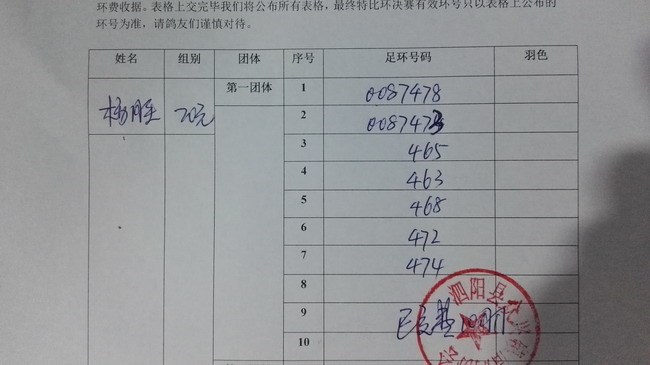 环费收据。表格上交完毕我们将公布所有表格，最终特比环决赛有效环号只以表格上公布的
环号为准，请鸽友们谨慎对待。
姓名 组别 团体 序号 足环号码 羽色
杨胜 70元 第一团体 1 0087478
2 0087473
3 465
4 463
5 468
6 472
7 474
8
9
10
泗阳县